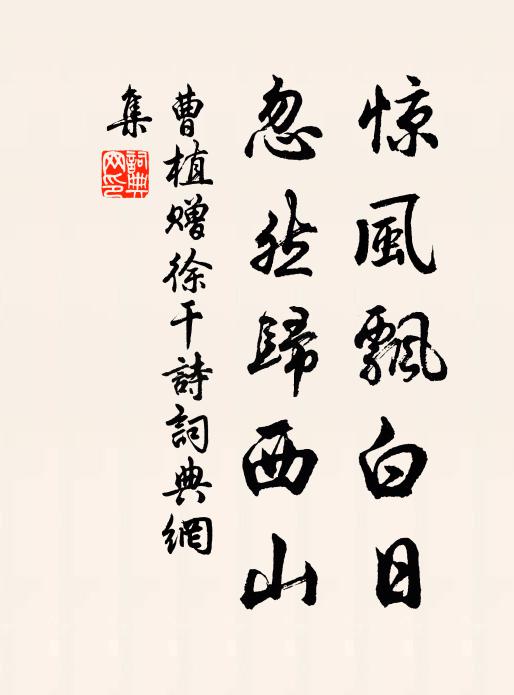 惊風飄白日
忽然歸西山
曹植赠徐干詩詞典網
集
詞典
网印